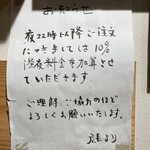 お知らせ
夜22時以降ご注文
につきましては10%
深夜料金を加算させ
ていただきます
ご理解、ご協力のほど
よろしくお願いいたします。
店長より